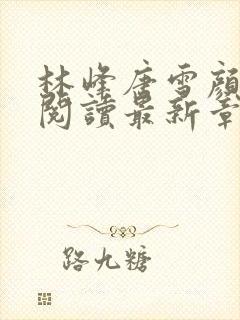 林峰唐雪顏
閱讀最新章
路九糖